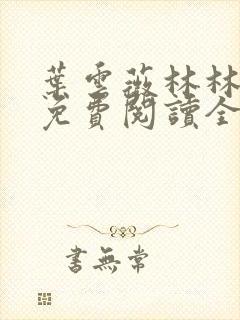 葉雲薇林林
免費閱讀全
書無常